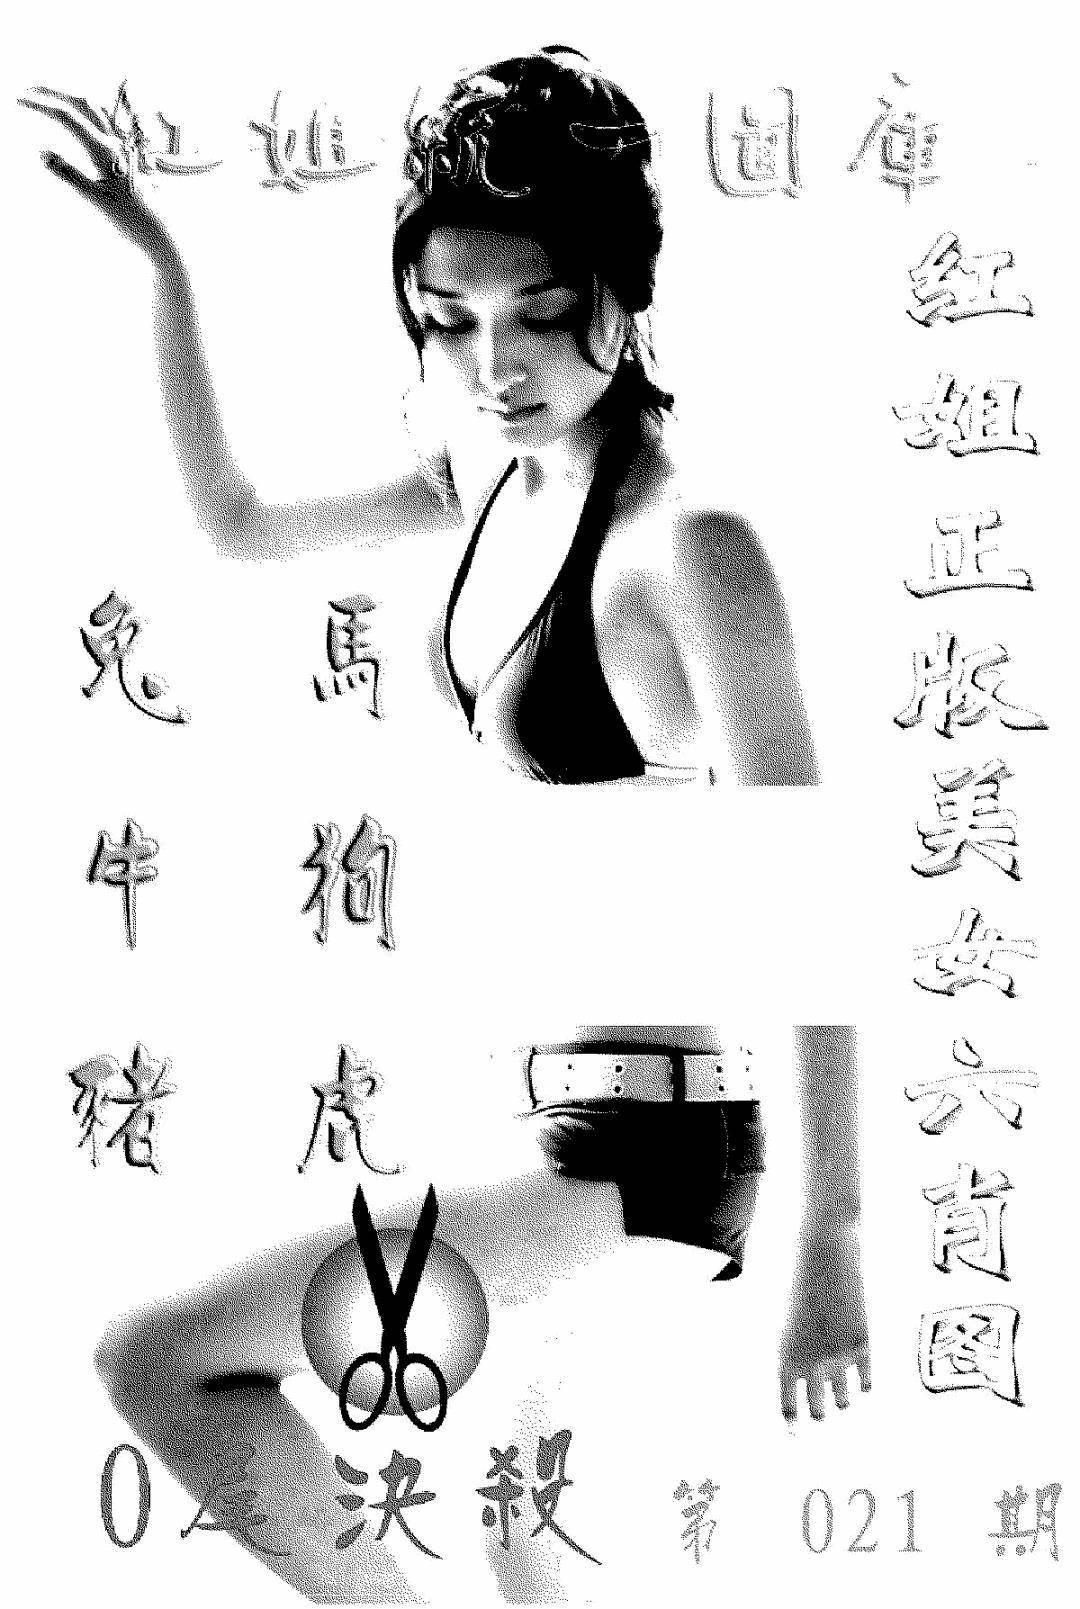 紅姐統一圖庫
紅姐正版美女六肖图
兔 馬
牛 狗
豬 虎
0尾決殺
第 021 期